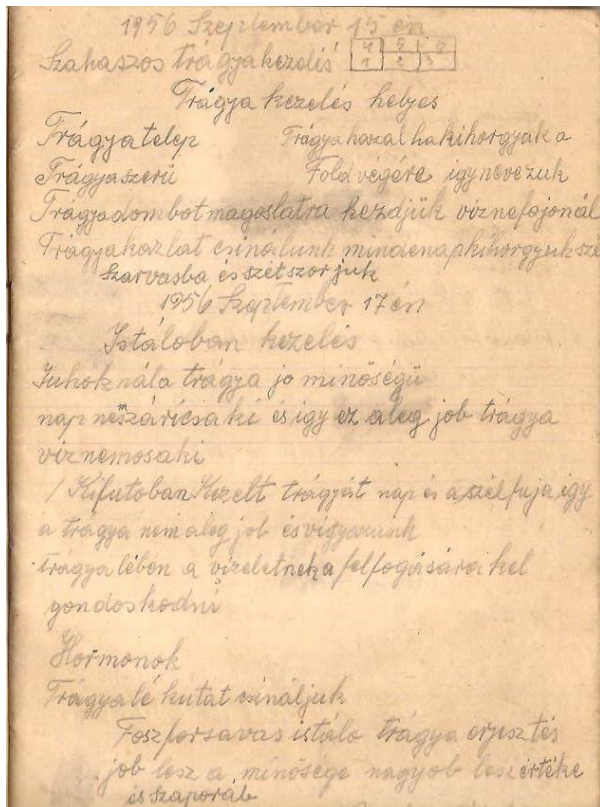 1956 Szeptember 15 én
Szakaszos trágyakezelés 4 5 6
1 2 3
Trágya kezelés helyes
Trágyatelep Trágya kazal ha kihorgyák a
Trágyaszerü Föld végére igynevezük
Trágyadombot magoslatra kezdjük viz nefojonál
Trágyakazlat csinálunk mindenap kihorgyuk szé
Szarvasba és szétszorjuk
1956 Szeptember 17 én
Istáloban kezelés
Juhoknála trágya jo minőségü
nap nem száricsa ki és igy ez aleg job trágya
viz nemosa ki
/ Kifutoban Kezelt trágyát nap és a szél fuja igy
a trágya nem aleg job és vigyazunk
trágya lébön a vizeletnek a felfogására i kel
gondoskodni
Hormonok
Trágyalé kutat csináljuk
Foszforsavas istálo trágya erjesztés
job lesz a minősége nagyob lesz értéke
és szaporáb